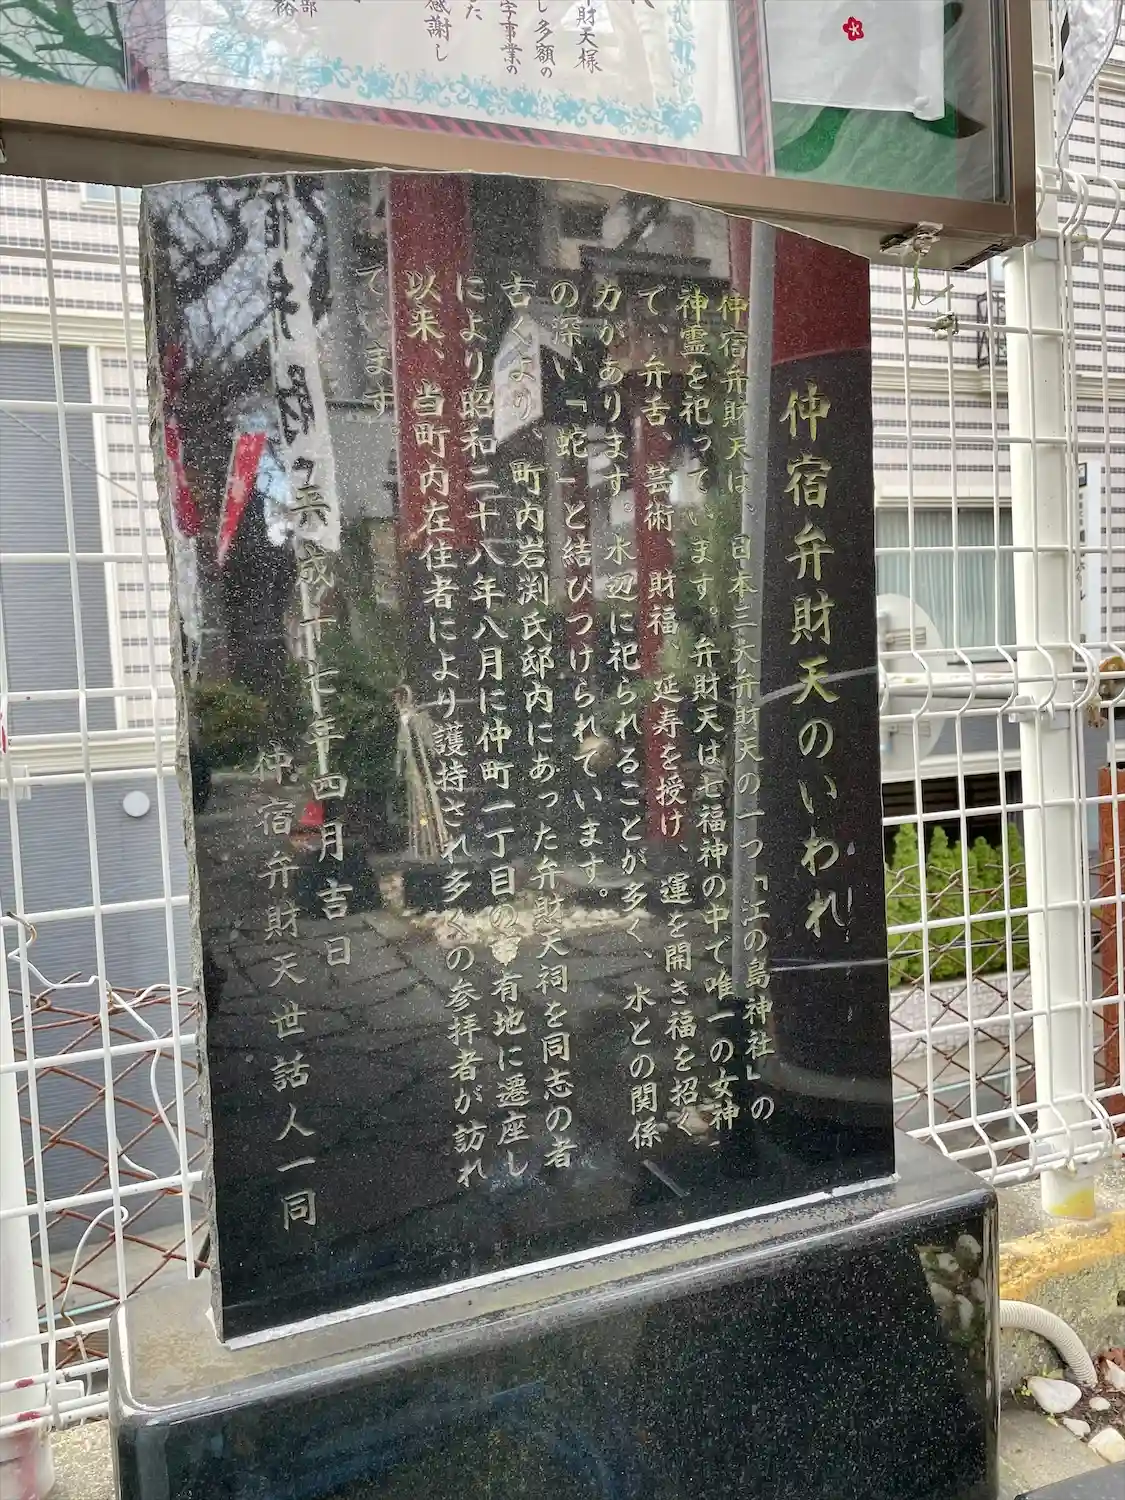 財天様
し多額の
字事業の
た
感謝し
部
裕
仲宿弁財天のいわれ
仲宿弁財天は、日本三大弁財天の一つ「江の島神社」の
神霊を祀っています。弁財天は七福神の中で唯一の女神
で、弁舌、芸術、財福、延寿を授け、運を開き福を招く
力があります。水辺に祀られることが多く、水との関係
の深い「蛇」と結びつけられています。
古くより、町内岩渕氏邸内にあった弁財天祠を同志の者
により昭和二十八年八月に仲町一丁目の有地に遷座し
以来、当町内在住者により護持され多くの参拝者が訪れ
ています
平成十七年四月吉日
仲宿弁財天世話人一同